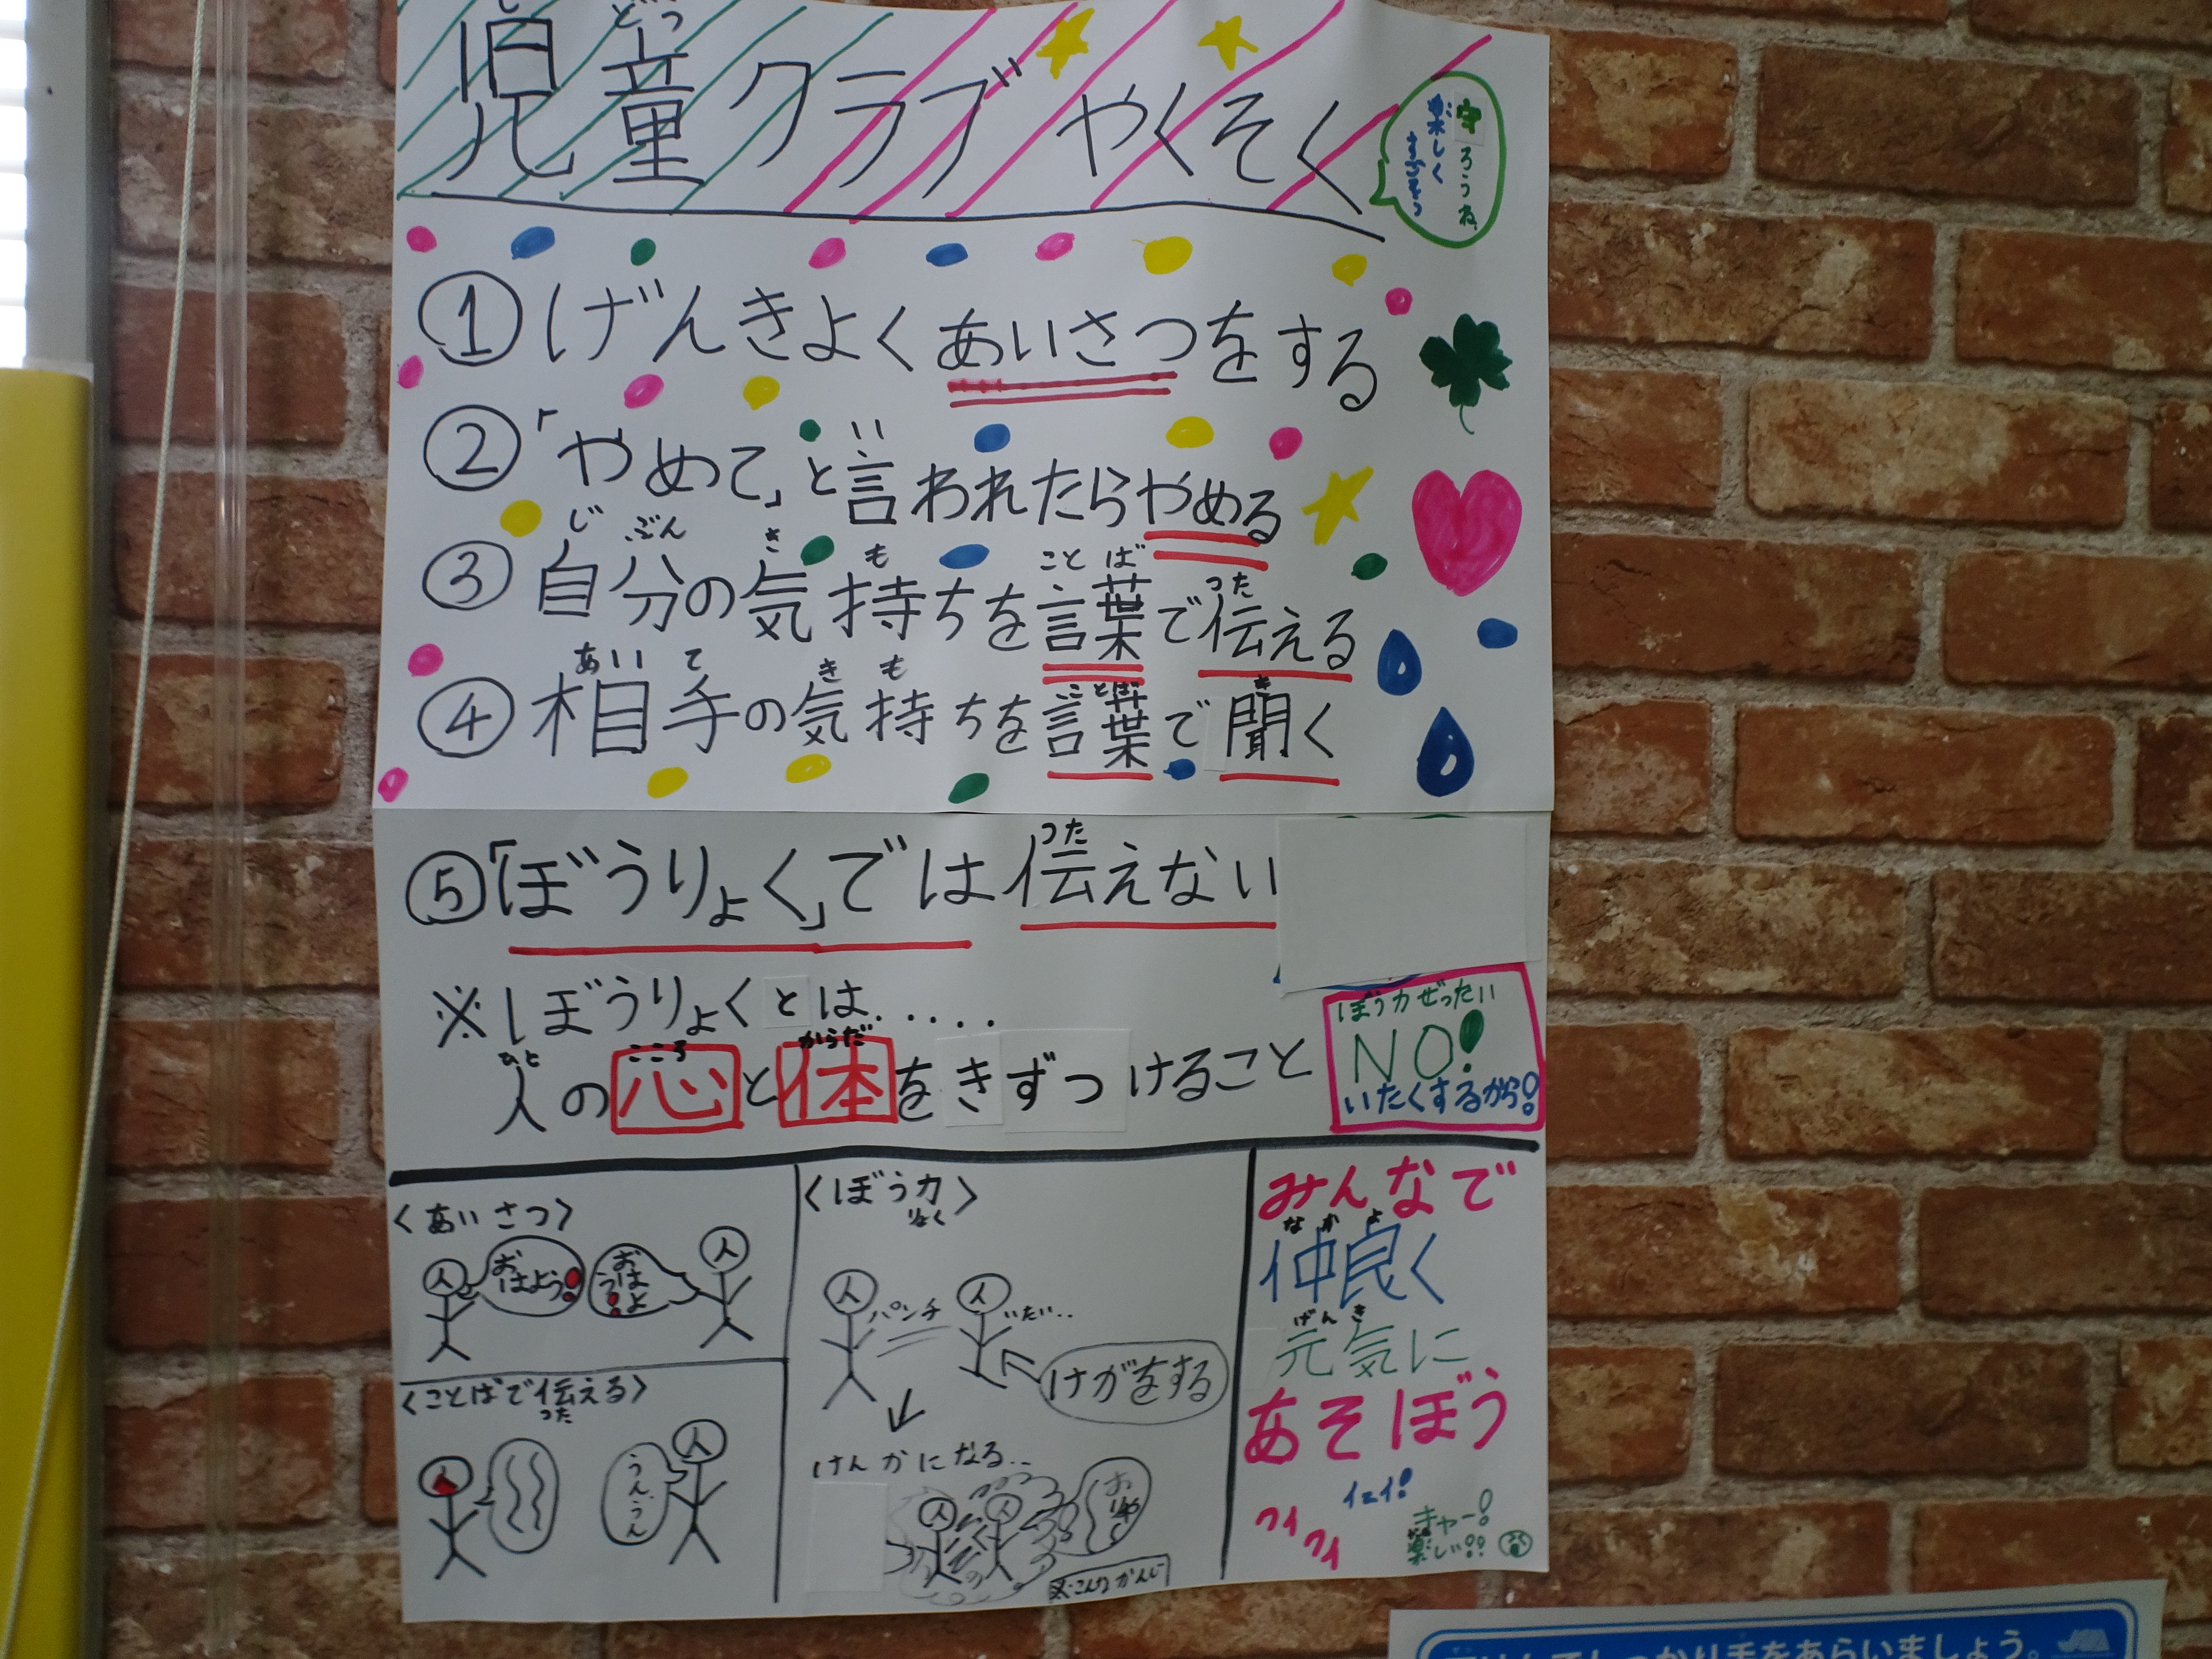 児童クラブ やくそく
守ろうね
楽しく
①げんきよくあいさつをする
②「やめて」と言われたらやめる
③自分の気持ちを言葉で伝える
④相手の気持ちを言葉で聞く
⑤「ぼうりょく」では伝えない
※ぼうりょくとは.....
人の心と体をきずつけること
ぼう力ぜったい
NO!
いたくするから!
〈あいさつ〉
おはよう!
おはよう!
〈ことばで伝える〉
うんうん
〈ぼう力〉
パンチ
いたい..
けがをする
けんかになる...
※こんなかんじ
みんなで
仲良く
元気に
あそぼう
イェイ!
ワイワイ
キャー!
楽しい!!
しっかり手をあらいましょう。